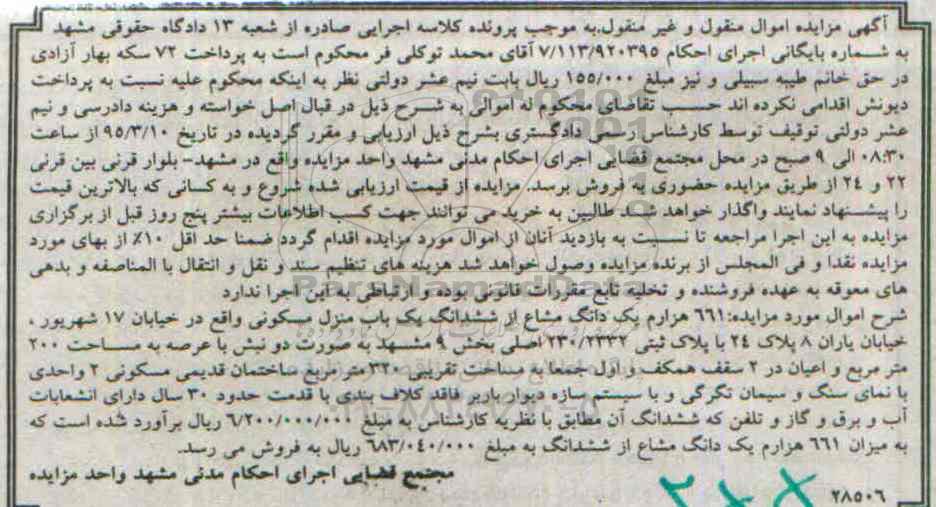 آگهی مزایده اموال منقول و غیر منقول.به موجب پرونده کلاسه اجرایی صادره از شعبه ۱۳ دادگاه حقوقی مشهد
به شماره بایگانی اجرای احکام ۷/۱۱۳/۹۲۰۳۹۵ آقای محمد توکلی فر محکوم است به پرداخت ۷۲ سکه بهار آزادی
در حق خانم طیبه سبیلی و نیز مبلغ ۱۵۵/۰۰۰ ریال بابت نیم عشر دولتی نظر به اینکه محکوم علیه نسبت به پرداخت
دیونش اقدامی نکرده اند حسب تقاضای محکوم له اموالی به شرح ذیل در قبال اصل خواسته و هزینه دادرسی و نیم
عشر دولتی توقیف توسط کارشناس رسمی دادگستری بشرح ذیل ارزیابی و مقرر گردیده در تاریخ ۹۵/۳/۱۰ از ساعت
۰۸:۳۰ الی ۹ صبح در محل مجتمع قضایی اجرای احکام مدنی مشهد واحد مزایده واقع در مشهد- بلوار قرنی بین قرنی
۲۲ و ۲٤ از طریق مزایده حضوری به فروش برسد. مزایده از قیمت ارزیابی شده شروع و به کسانی که بالاترین قیمت
را پیشنهاد نمایند واگذار خواهد شد طالبین به خرید می توانند جهت کسب اطلاعات بیشتر پنج روز قبل از برگزاری
مزایده به این اجرا مراجعه تا نسبت به بازدید آنان از اموال مورد مزایده اقدام گردد ضمنا حد اقل ۱۰٪ از بهای مورد
مزایده نقدا و فی المجلس از برنده مزایده وصول خواهد شد هزینه های تنظیم سند و نقل و انتقال با المناصفه و بدهی
های معوقه به عهده فروشنده و تخلیه تابع مقررات قانونی بوده و ارتباطی به این اجرا ندارد
شرح اموال مورد مزایده:٦٦۱ هزارم یک دانگ مشاع از ششدانگ یک باب منزل مسکونی واقع در خیابان ۱۷ شهریور ،
خیابان یاران ۸ پلاک ۲٤ با پلاک ثبتی ۲۳۰/۲۳۳۲ اصلی بخش ۹ مشهد به صورت دو نبش با عرصه به مساحت ۲۰۰
متر مربع و اعیان در ۲ سقف همکف و اول جمعا به مساحت تقریبی ۳۲۰ متر مربع ساختمان قدیمی مسکونی ۲ واحدی
با نمای سنگ و سیمان تگرگی و با سیستم سازه دیوار باربر فاقد کلاف بندی با قدمت حدود ۳۰ سال دارای انشعابات
آب و برق و گاز و تلفن که ششدانگ آن مطابق با نظریه کارشناس به مبلغ ٦/۲۰۰/۰۰۰/۰۰۰ ریال برآورد شده است که
به میزان ٦٦۱ هزارم یک دانگ مشاع از ششدانگ به مبلغ ٦۸۳/۰٤۰/۰۰۰ ریال به فروش می رسد.
مجتمع قضایی اجرای احکام مدنی مشهد واحد مزایده
۲۸۵۰٦
ParsNamadData